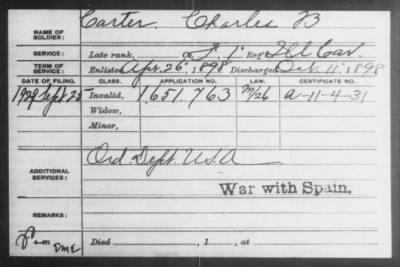 NAME OF SOLDIER: Carter, Charles B
SERVICE: Late rank, of S. 1' Reg't Ill Cav.
TERM OF SERVICE: Enlisted Apr. 26, 1898 Discharged Oct. 11, 1898
DATE OF FILING. CLASS. APPLICATION NO. LAW. CERTIFICATE NO.
1929 Sept 25 Invalid, 1,651,763 A-11-4-31
Widow,
Minor,
ADDITIONAL SERVICES: Ord. Dept. U.S.A
War with Spain.
REMARKS:
Died , 1 , at